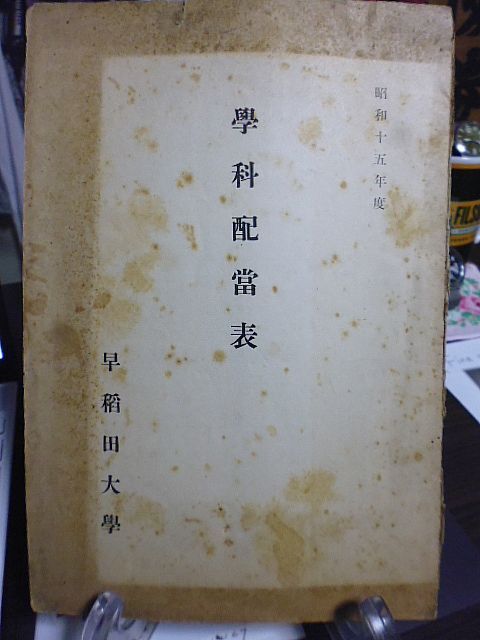 昭和十五年度
學科配當表
早稻田大學
FILS